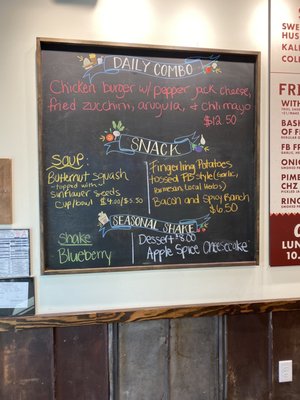 DAILY COMBO
Chicken burger w/ pepper jack cheese,
fried zucchini, arugula, + chili mayo
$12.50
SNACK
SOUP:
Butternut squash
-topped with
sunflower seeds
cup/bowl $4.00/$5.50
Fingerling Potatoes
tossed PB style (garlic,
parmesan, Local Herbs)
Bacon and Spicy Ranch
$6.50
SEASONAL SHAKE
Shake
Blueberry
Dessert $8.00
Apple Spice Cheesecake
SWE
HUS
KAL
COL
FRI
WITH
BASK
OF F
FB FR
GARLIC,
ONION,
PIME
CHZ
RING
LUN
10.